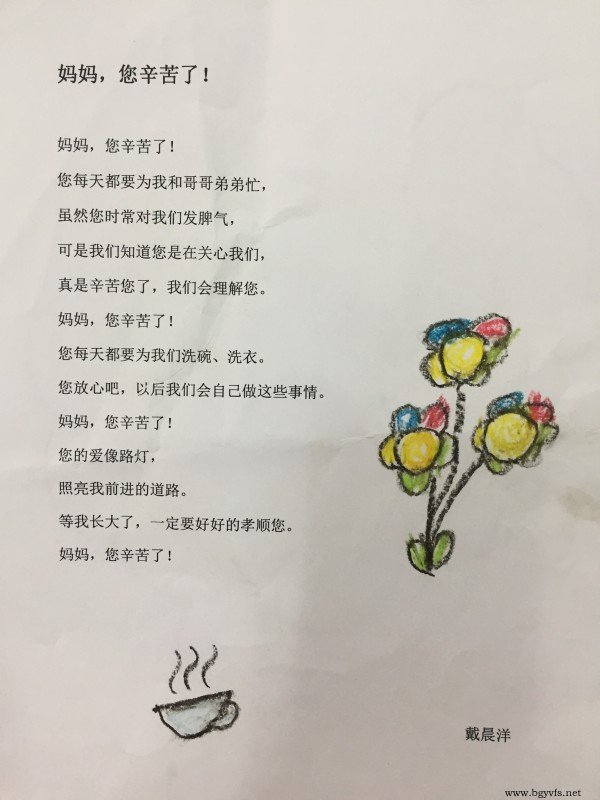 妈妈，您辛苦了！
妈妈，您辛苦了！
您每天都要为我和哥哥弟弟忙，
虽然您时常对我们发脾气，
可是我们知道您是在关心我们，
真是辛苦您了，我们会理解您。
妈妈，您辛苦了！
您每天都要为我们洗碗、洗衣。
您放心吧，以后我们会自己做这些事情。
妈妈，您辛苦了！
您的爱像路灯，
照亮我前进的道路。
等我长大了，一定要好好的孝顺您。
妈妈，您辛苦了！
戴晨洋
www.bgyvfs.net